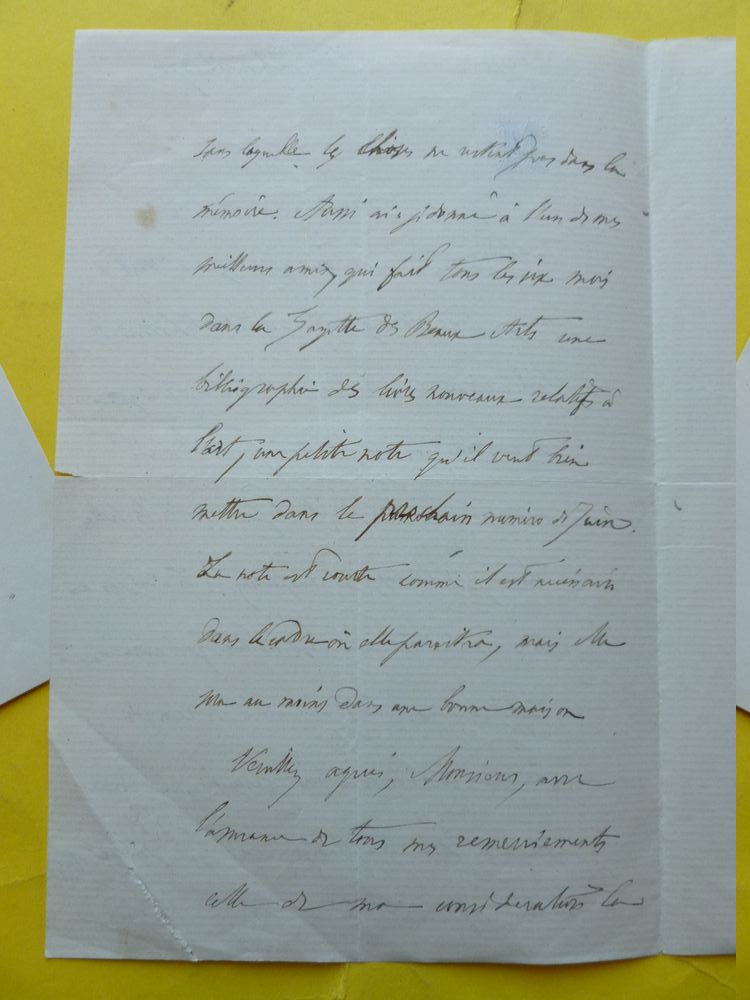 sans laquelle les choses ne restent pas dans la
mémoire. Aussi ai-je donné à l'un de mes
meilleurs amis, qui fait tous les six mois
dans la Gazette des Beaux Arts une
bibliographie des livres nouveaux relatifs à
l'art, une petite note qu'il veut bien
mettre dans le prochain numéro de Juin.
La note est courte comme il est nécessaire
dans le cadre où elle paraitra, mais elle
sera au moins dans une bonne maison
Veuillez agréer, Monsieur, avec
l'assurance de tous mes remerciements
celle de ma considération la